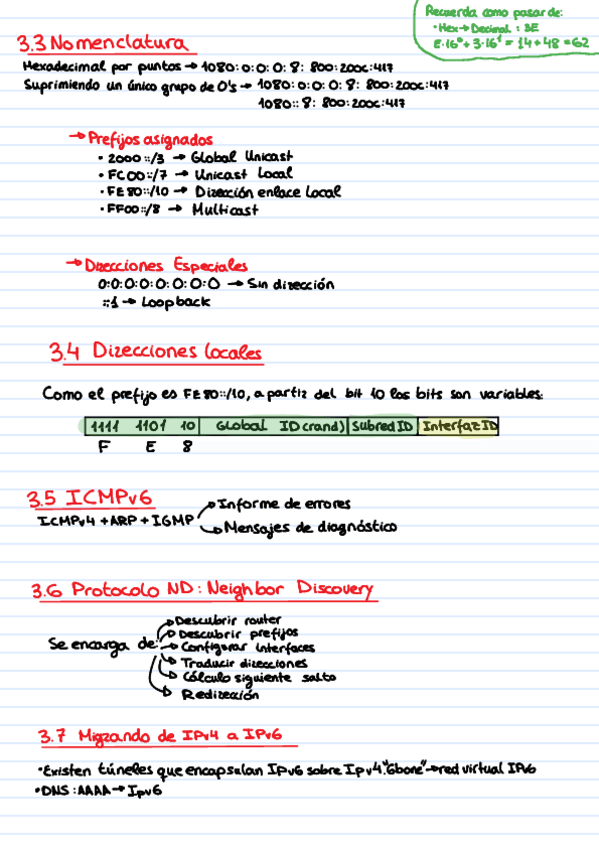 Recuerda como pasar de:
• Hex → Decimal : 3E
E·16⁰ + 3·16¹ = 14 + 48 = 62
3.3 Nomenclatura
Hexadecimal por puntos → 1080:0:0:0:8:800:200C:417
Suprimiendo un único grupo de 0's → 1080:0:0:0:8:800:200C:417
1080::8:800:200C:417
→ Prefijos asignados
• 2000::/3 → Global Unicast
• FC00::/7 → Unicast Local
• FE80::/10 → Dirección enlace Local
• FF00::/8 → Multicast
→ Direcciones Especiales
0:0:0:0:0:0:0:0 → Sin dirección
::1 → Loopback
3.4 Direcciones locales
Como el prefijo es FE80::/10, a partir del bit 10 los bits son variables:
1111 1101 10 Global ID (rand) Subred ID Interfaz ID
F E 8
3.5 ICMPv6
ICMPv4 + ARP + IGMP
Informe de errores
Mensajes de diagnóstico
3.6 Protocolo ND: Neighbor Discovery
Se encarga de:
Descubrir router
Descubrir prefijos
Configurar interfaces
Traducir direcciones
Cálculo siguiente salto
Redirección
3.7 Migrando de IPv4 a IPv6
• Existen túneles que encapsulan IPv6 sobre Ipv4."6bone" → red virtual IPv6
• DNS : AAAA → Ipv6